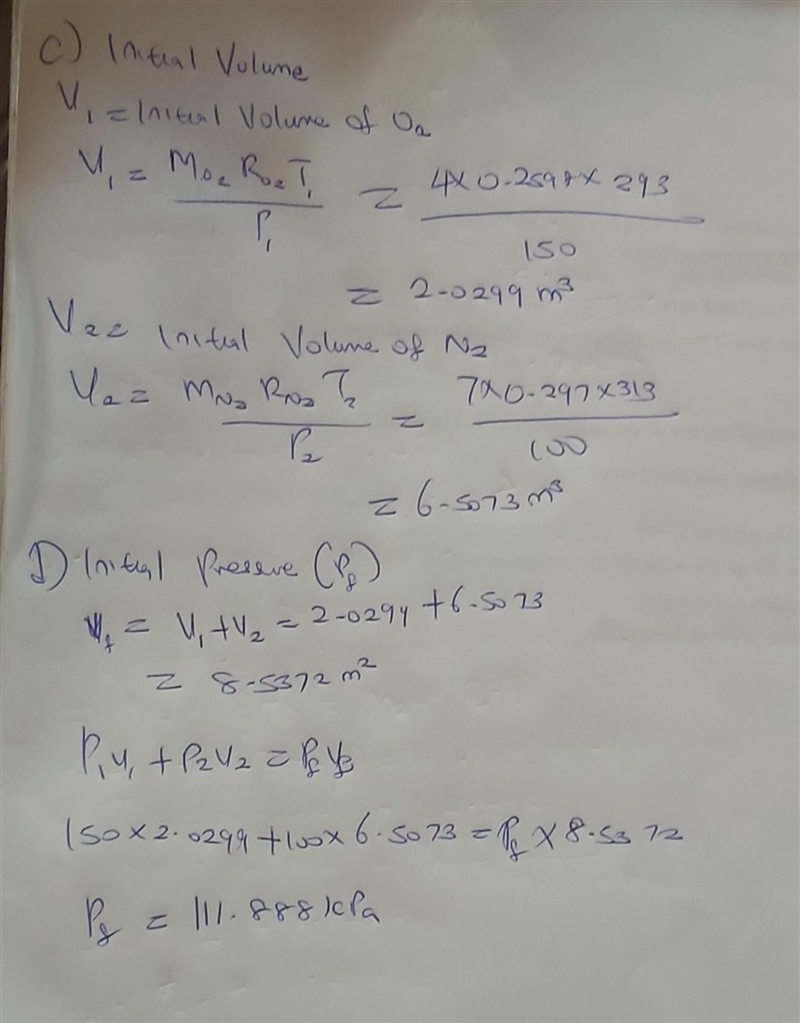 C) Initial Volume
V₁ = Initial Volume of O₂
V₁ = M_O₂ R_O₂ T₁ / P₁ = 4 × 0.2598 × 293 / 150
= 2.0299 m³
V₂ = Initial Volume of N₂
V₂ = M_N₂ R_N₂ T₂ / P₂ = 7 × 0.297 × 313 / 100
= 6.5073 m³
D) Initial Pressure (P_f)
V_f = V₁ + V₂ = 2.0299 + 6.5073
= 8.5372 m²
P₁V₁ + P₂V₂ = P_f V_f
150 × 2.0299 + 100 × 6.5073 = P_f × 8.5372
P_f = 111.888 kPa